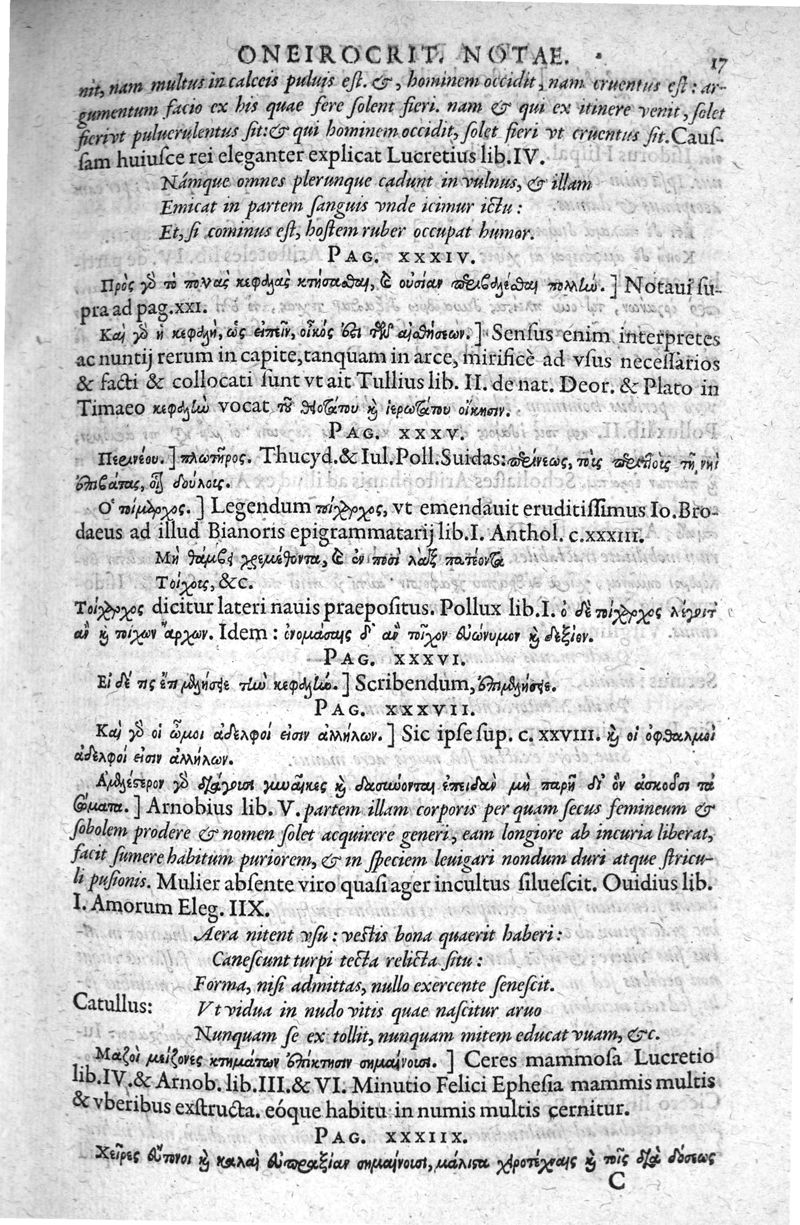 ONEIROCRIT. NOTAE. 17
nit, nam multus in calceis puluis est. &, hominem occidit, nam cruentus est: ar-
gumentum facio ex his quae fere solent fieri. nam & qui ex itinere venit, solet
fieri vt puluerulentus sit: & qui hominem occidit, solet fieri vt cruentus sit. Caus-
sam huiusce rei eleganter explicat Lucretius lib. IV.
Námque omnes plerunque cadunt in vulnus, & illam
Emicat in partem sanguis vnde icimur ictu:
Et, si cominus est, hostem ruber occupat humor.
PAG. XXXIV.
Πρὸς γὸ τὸ πολλὰς κεφαλὰς κτήσασθαι, καὶ οὐσίαν περιβαλέσθαι πολλήν. ] Notaui su-
pra ad pag. XXI.
Καὶ γὸ ἡ κεφαλὴ, ὡς εἰπεῖν, οἶκός ἐστι τῶν αἰσθήσεων. ] Sensus enim interpretes
ac nuntij rerum in capite, tanquam in arce, mirificè ad vsus necessarios
& facti & collocati sunt vt ait Tullius lib. II. de nat. Deor. & Plato in
Timaeo κεφαλὴν vocat τοῦ θειοτάτου καὶ ἱερωτάτου οἴκησιν.
PAG. XXXV.
Περινέου. ] πλωτῆρος. Thucyd. & Iul. Poll. Suidas: περίνεως, τοὺς περιττοὺς τῇ νηῒ
ἐπιβάτας, οἷον δούλοις.
Ὁ τοίμαρχος. ] Legendum τοίχαρχος, vt emendauit eruditissimus Io. Bro-
daeus ad illud Bianoris epigrammatarij lib. I. Anthol. c. XXXIII.
Μὴ θάμβει χρεμέθοντα, καὶ ἐν ποσὶ λὰξ πατέοντα
Τοίχοις, &c.
Τοίχαρχος dicitur lateri nauis praepositus. Pollux lib. I. ὁ δὲ τοίχαρχος λέγοιτ'
ἂν καὶ τοίχων ἄρχων. Idem: ὀνομάσαις δ' ἂν τοῖχον εὐώνυμον καὶ δεξιόν.
PAG. XXXVI.
Εἰ δέ τις ἐπιμελήσηται τὴν κεφαλήν. ] Scribendum,
PAG. XXXVII.
Καὶ γὸ οἱ ὦμοι ἀδελφοί εἰσιν ἀλλήλων. ] Sic ipse sup. c. XXVIII. καὶ οἱ ὀφθαλμοὶ
ἀδελφοί εἰσιν ἀλλήλων.
Ἀμελέστερον γὸ διάγουσι γυναῖκες καὶ δασύνονται ἐπειδὰν μὴ παρῇ δι' ὃν ἀσκοῦσι τὰ
σώματα. ] Arnobius lib. V. partem illam corporis per quam secus femineum &
sobolem prodere & nomen solet acquirere generi, eam longiore ab incuria liberat,
facit sumere habitum puriorem, & in speciem leuigari nondum duri atque stricu-
li pusionis. Mulier absente viro quasi ager incultus siluescit. Ouidius lib.
I. Amorum Eleg. IIX.
Aera nitent vsu: vestis bona quaerit haberi:
Canescunt turpi tecta relicta situ:
Forma, nisi admittas, nullo exercente senescit.
Catullus: Vt vidua in nudo vitis quae nascitur aruo
Nunquam se ex tollit, nunquam mitem educat vuam, &c.
Μαζοὶ μείζονες κτημάτων ἐπίκτησιν σημαίνουσι. ] Ceres mammosa Lucretio
lib. IV. & Arnob. lib. III. & VI. Minutio Felici Ephesia mammis multis
& vberibus exstructa. eóque habitu in numis multis cernitur.
PAG. XXXIIX.
Χεῖρες εὔτονοι καὶ καλαὶ εὐπραξίαν σημαίνουσι, μάλιστα χειροτέχναις καὶ τοῖς διὰ δόσεως
C